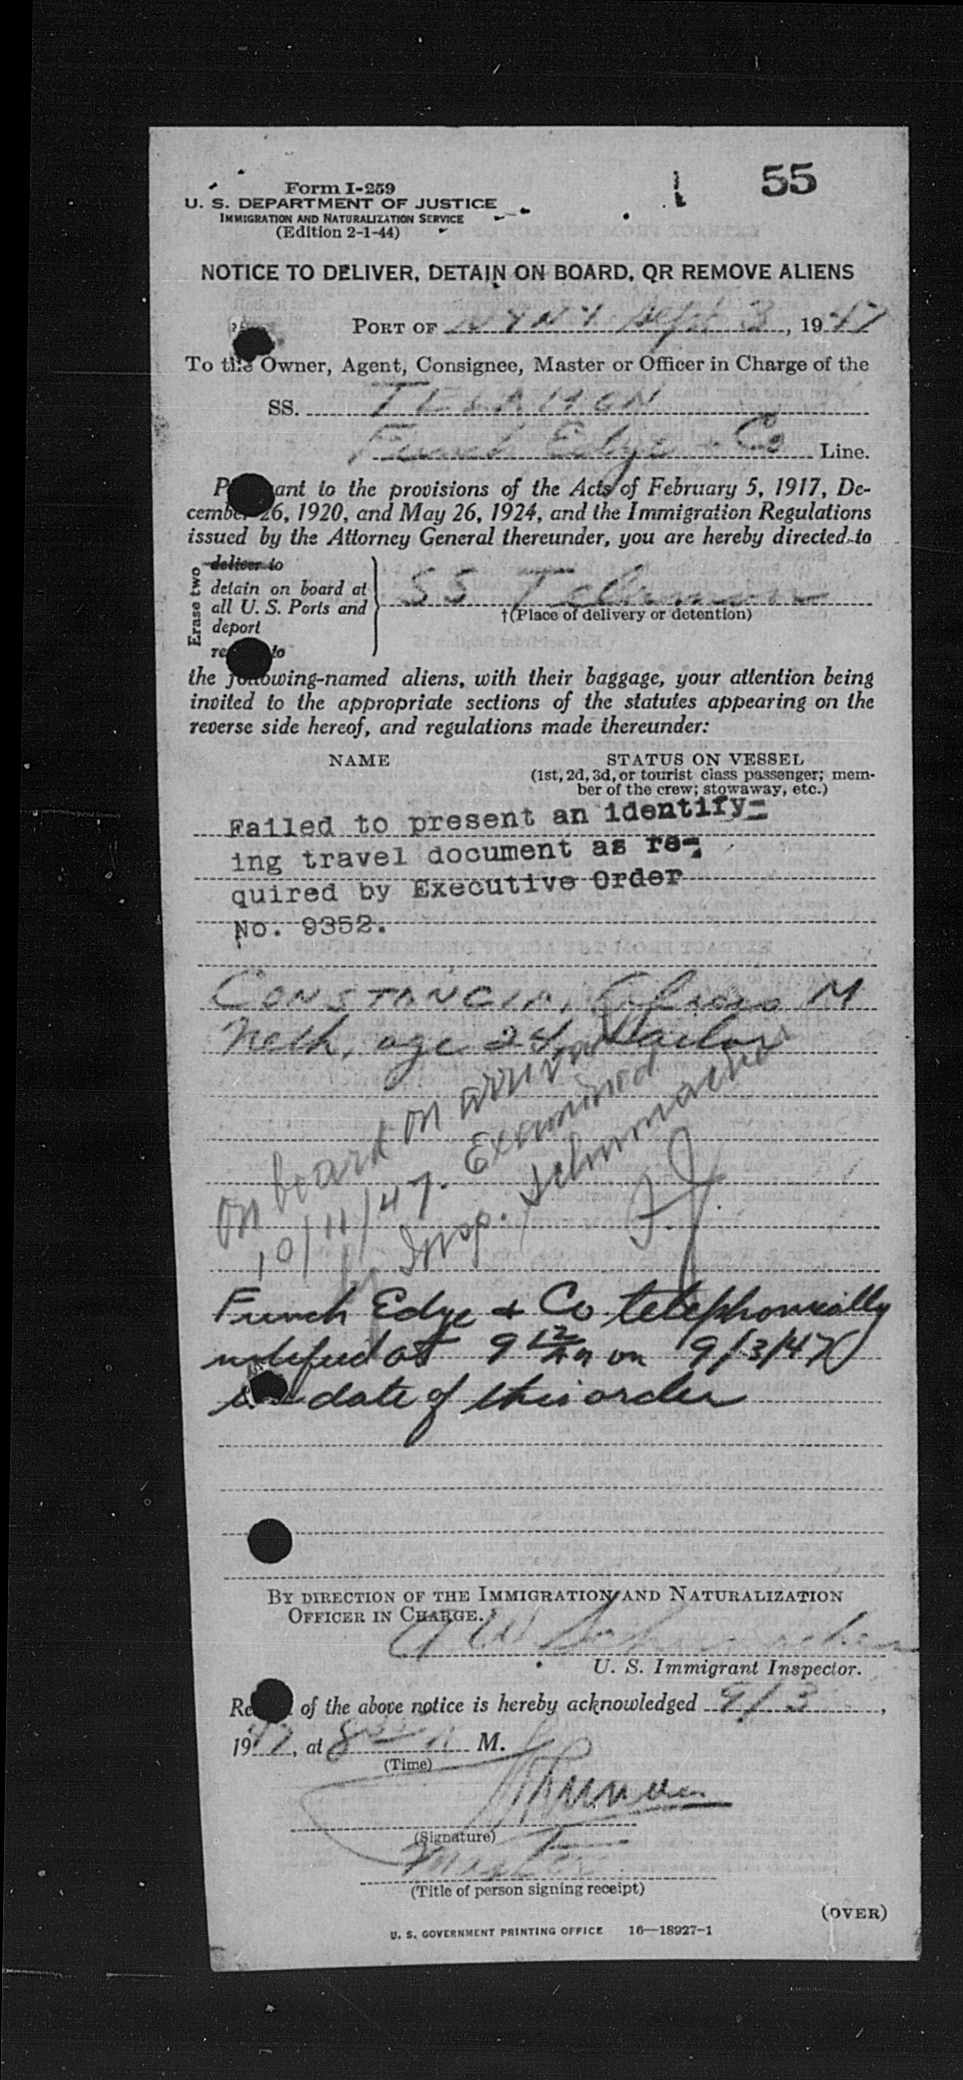 55
Form I-259
U. S. DEPARTMENT OF JUSTICE
IMMIGRATION AND NATURALIZATION SERVICE
(Edition 2-1-44)
NOTICE TO DELIVER, DETAIN ON BOARD, OR REMOVE ALIENS
PORT OF NYNY Sept 3, 1947
To the Owner, Agent, Consignee, Master or Officer in Charge of the
SS. TELAMON
Funch Edye + Co Line.
Pursuant to the provisions of the Acts of February 5, 1917, De-
cember 26, 1920, and May 26, 1924, and the Immigration Regulations
issued by the Attorney General thereunder, you are hereby directed to
Erase two
deliver to
detain on board at
all U. S. Ports and
deport
remove to
SS Telamon
†(Place of delivery or detention)
the following-named aliens, with their baggage, your attention being
invited to the appropriate sections of the statutes appearing on the
reverse side hereof, and regulations made thereunder:
NAME STATUS ON VESSEL
(1st, 2d, 3d, or tourist class passenger; mem-
ber of the crew; stowaway, etc.)
Failed to present an identify-
ing travel document as re-
quired by Executive Order
No. 9352.
CONSTANCIA, M
Neth, age 24, Sailor
On board on arrival
10/11/47. Examined
by Insp. Schumacher
F.J.
Funch Edye + Co telephonically
notified at 9 12/ on 9/3/47
date of this order
BY DIRECTION OF THE IMMIGRATION AND NATURALIZATION
OFFICER IN CHARGE.
A W Schumacher
U. S. Immigrant Inspector.
Receipt of the above notice is hereby acknowledged 9/3,
1947, at 8 A M.
(Time)
(Signature)
Master
(Title of person signing receipt)
(OVER)
U. S. GOVERNMENT PRINTING OFFICE 16—18927-1